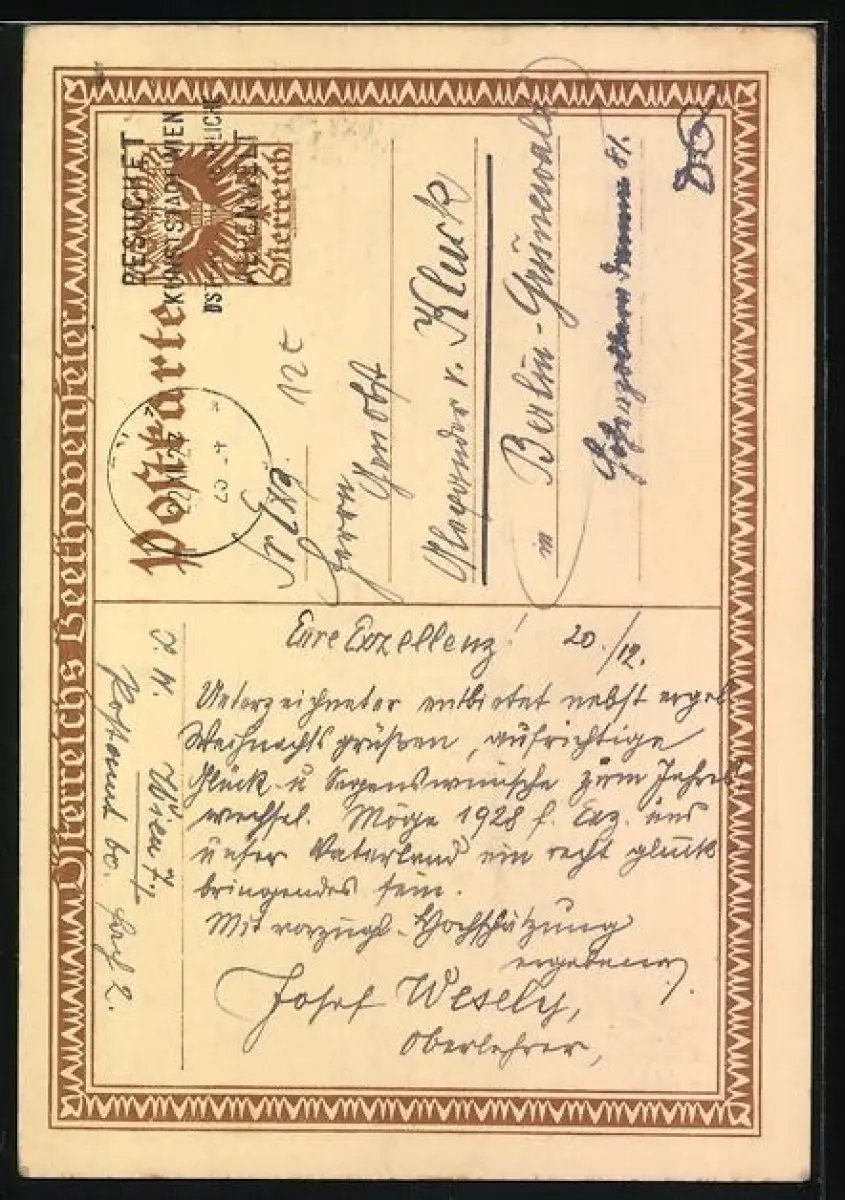 Österreichs Beethovenfeier
Postkarte
Österreich
BESUCHET
KUNSTSTADT WIEN
ALPENWELT
12 t
Herrn
Genobst
Alexander v. Kluck
in Berlin-Grünewald
81.
Eure Exzellenz! 20./12.
Unterzeichneter entbietet nebst ergeb
Weihnachtsgrüßen, aufrichtige
Glück- u Segenswünsche zum Jahres
wechsel. Möge 1928 f. Exz. und
unser Vaterland ein recht glück
bringendes sein.
Mit vorzügl. Hochschätzung
ergebener
Josef Wesely,
Oberlehrer,
Wien 7/1
Postamt 60. Fach 2.